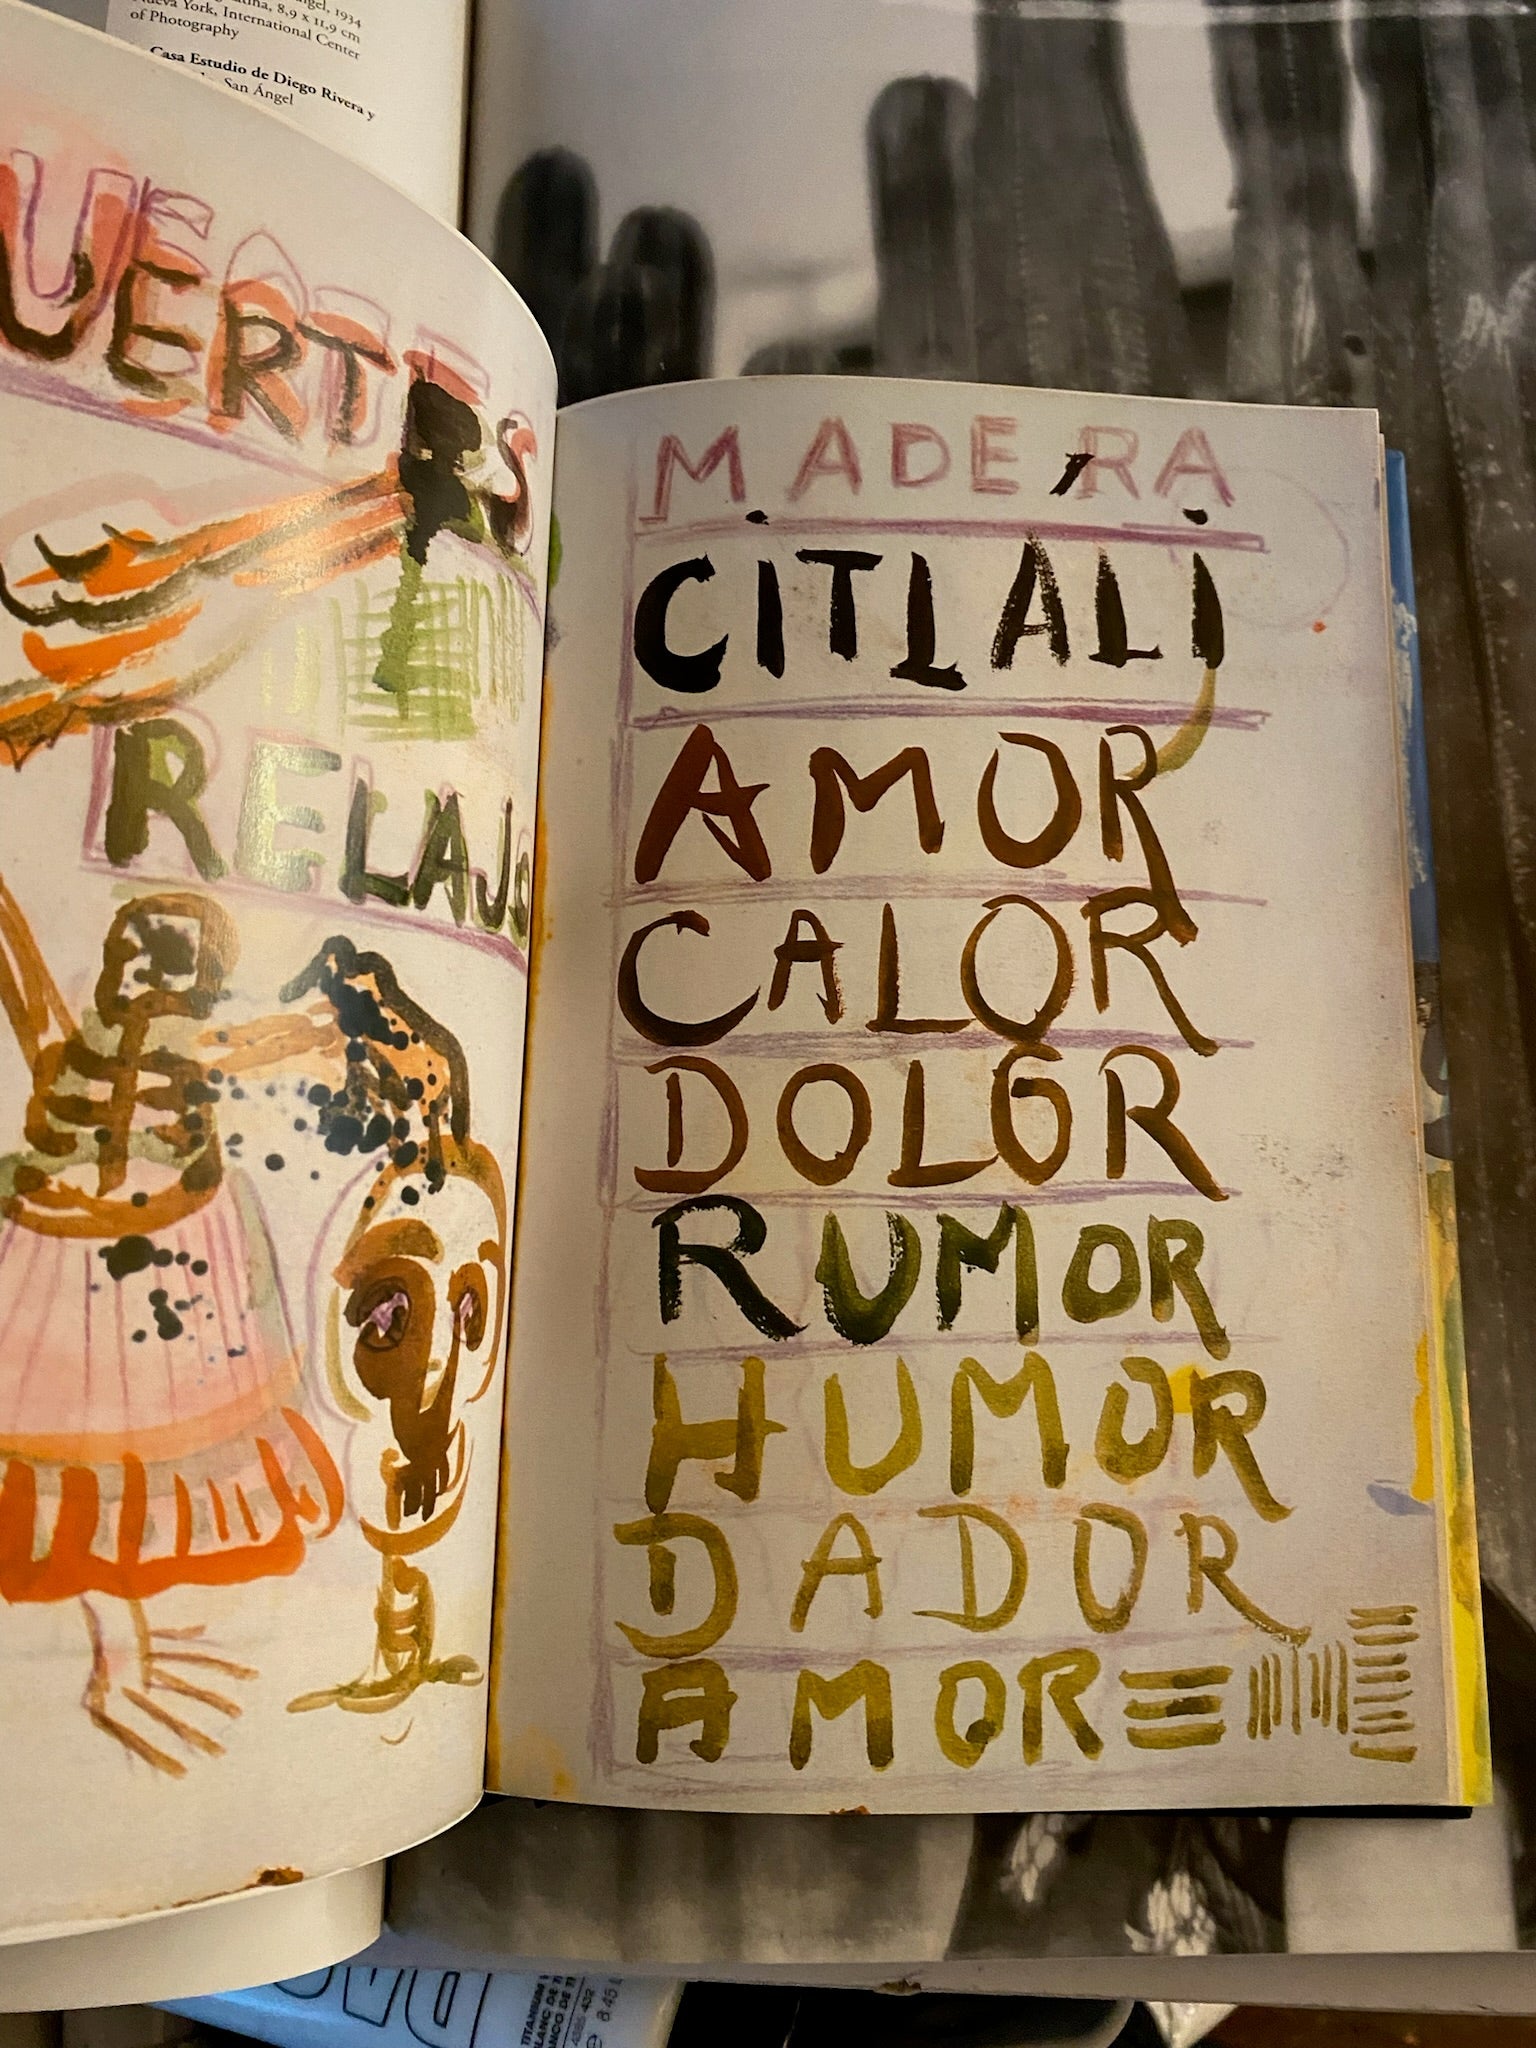 ngel, 1934
8,9 x 11,9 cm
Nueva York, International Center
of Photography
Casa Estudio de Diego Rivera y
San Ángel
UERTES
RELAJO
MADERA
CITLALI
AMOR
CALOR
DOLOR
RUMOR
HUMOR
DADOR
AMOR
TITANIUM
BLANC DE
432
8.45